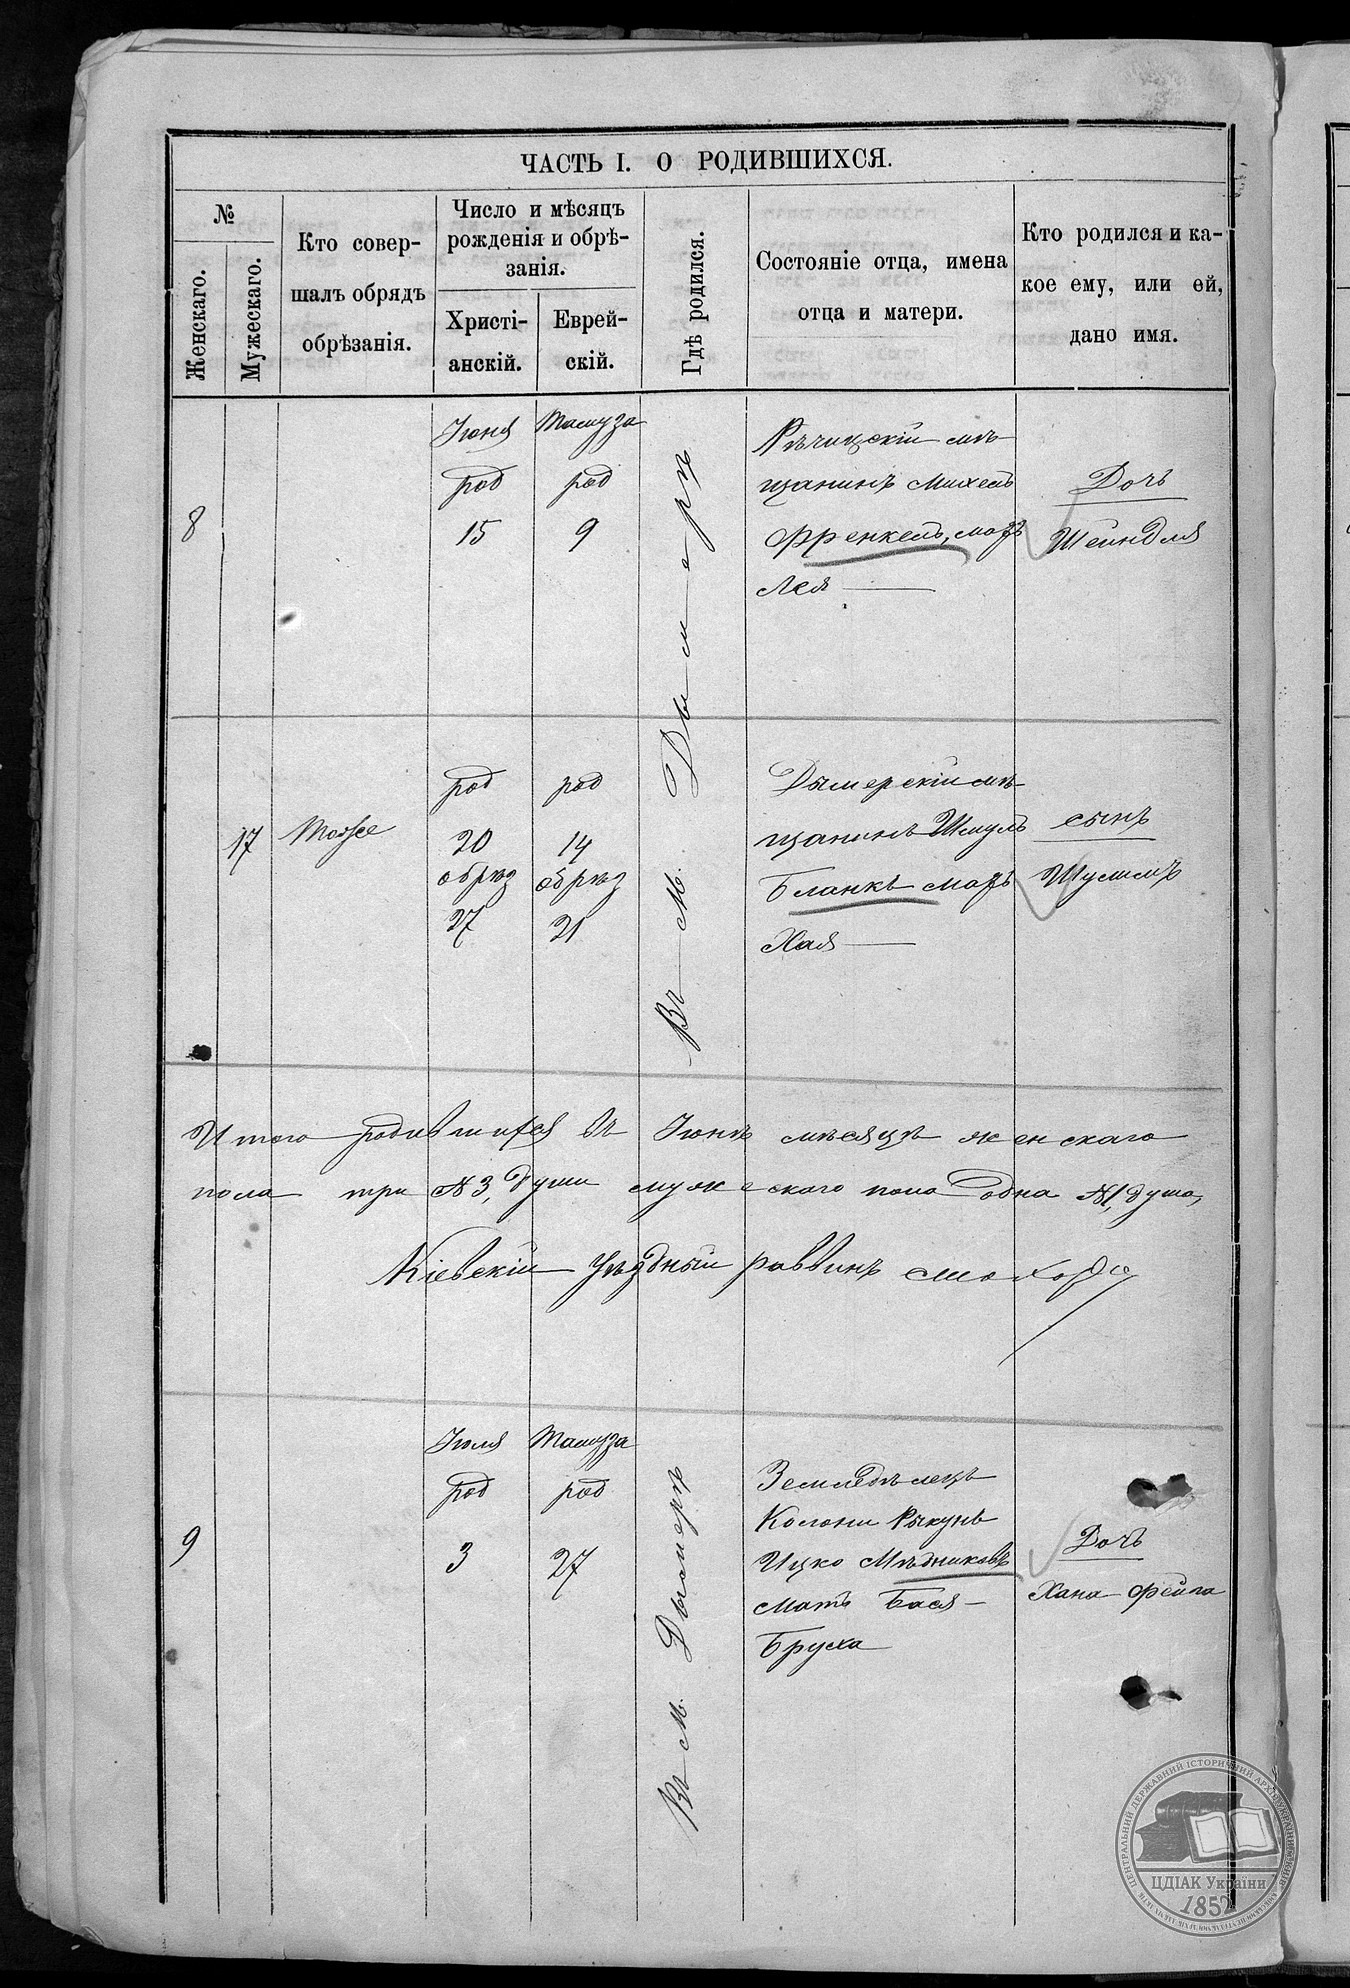 ЧАСТЬ I. О РОДИВШИХСЯ.
№
Женскаго.
Мужескаго.
Кто совер-
шалъ обрядъ
обрѣзанія.
Число и мѣсяцъ
рожденія и обрѣ-
занія.
Христі-
анскій.
Еврей-
скій.
Гдѣ родился.
Состояніе отца, имена
отца и матери.
Кто родился и ка-
кое ему, или ей,
дано имя.
8
Іюня
род
15
Тамуза
род
9
Въ М. Дымерѣ
Рѣчицскій мѣ-
щанинъ Михель
Френкель, мать
Лея
Дочь
Шейндля
17
Мойсе
род
20
обрѣз
27
род
14
обрѣз
21
Дымерскій мѣ-
щанинъ Шмуль
Бланкъ мать
Хая
сынъ
Шулимъ
Итого родившихся въ Іюнѣ мѣсяцѣ женскаго
пола три №3, души мужескаго пола одна №1, душа,
Кіевскій уѣздный раввинъ
9
Іюля
род
3
Тамуза
род
27
Въ М. Дымерѣ
Земледѣлецъ
Колони Рыкунь
Ицко Мѣдниковъ
мать Бася-
Бруха
Дочь
Хана Фейга
ЦЕНТРАЛЬНИЙ ДЕРЖАВНИЙ ІСТОРИЧНИЙ АРХІВ УКРАЇНИ
ЦДІАК України
1852